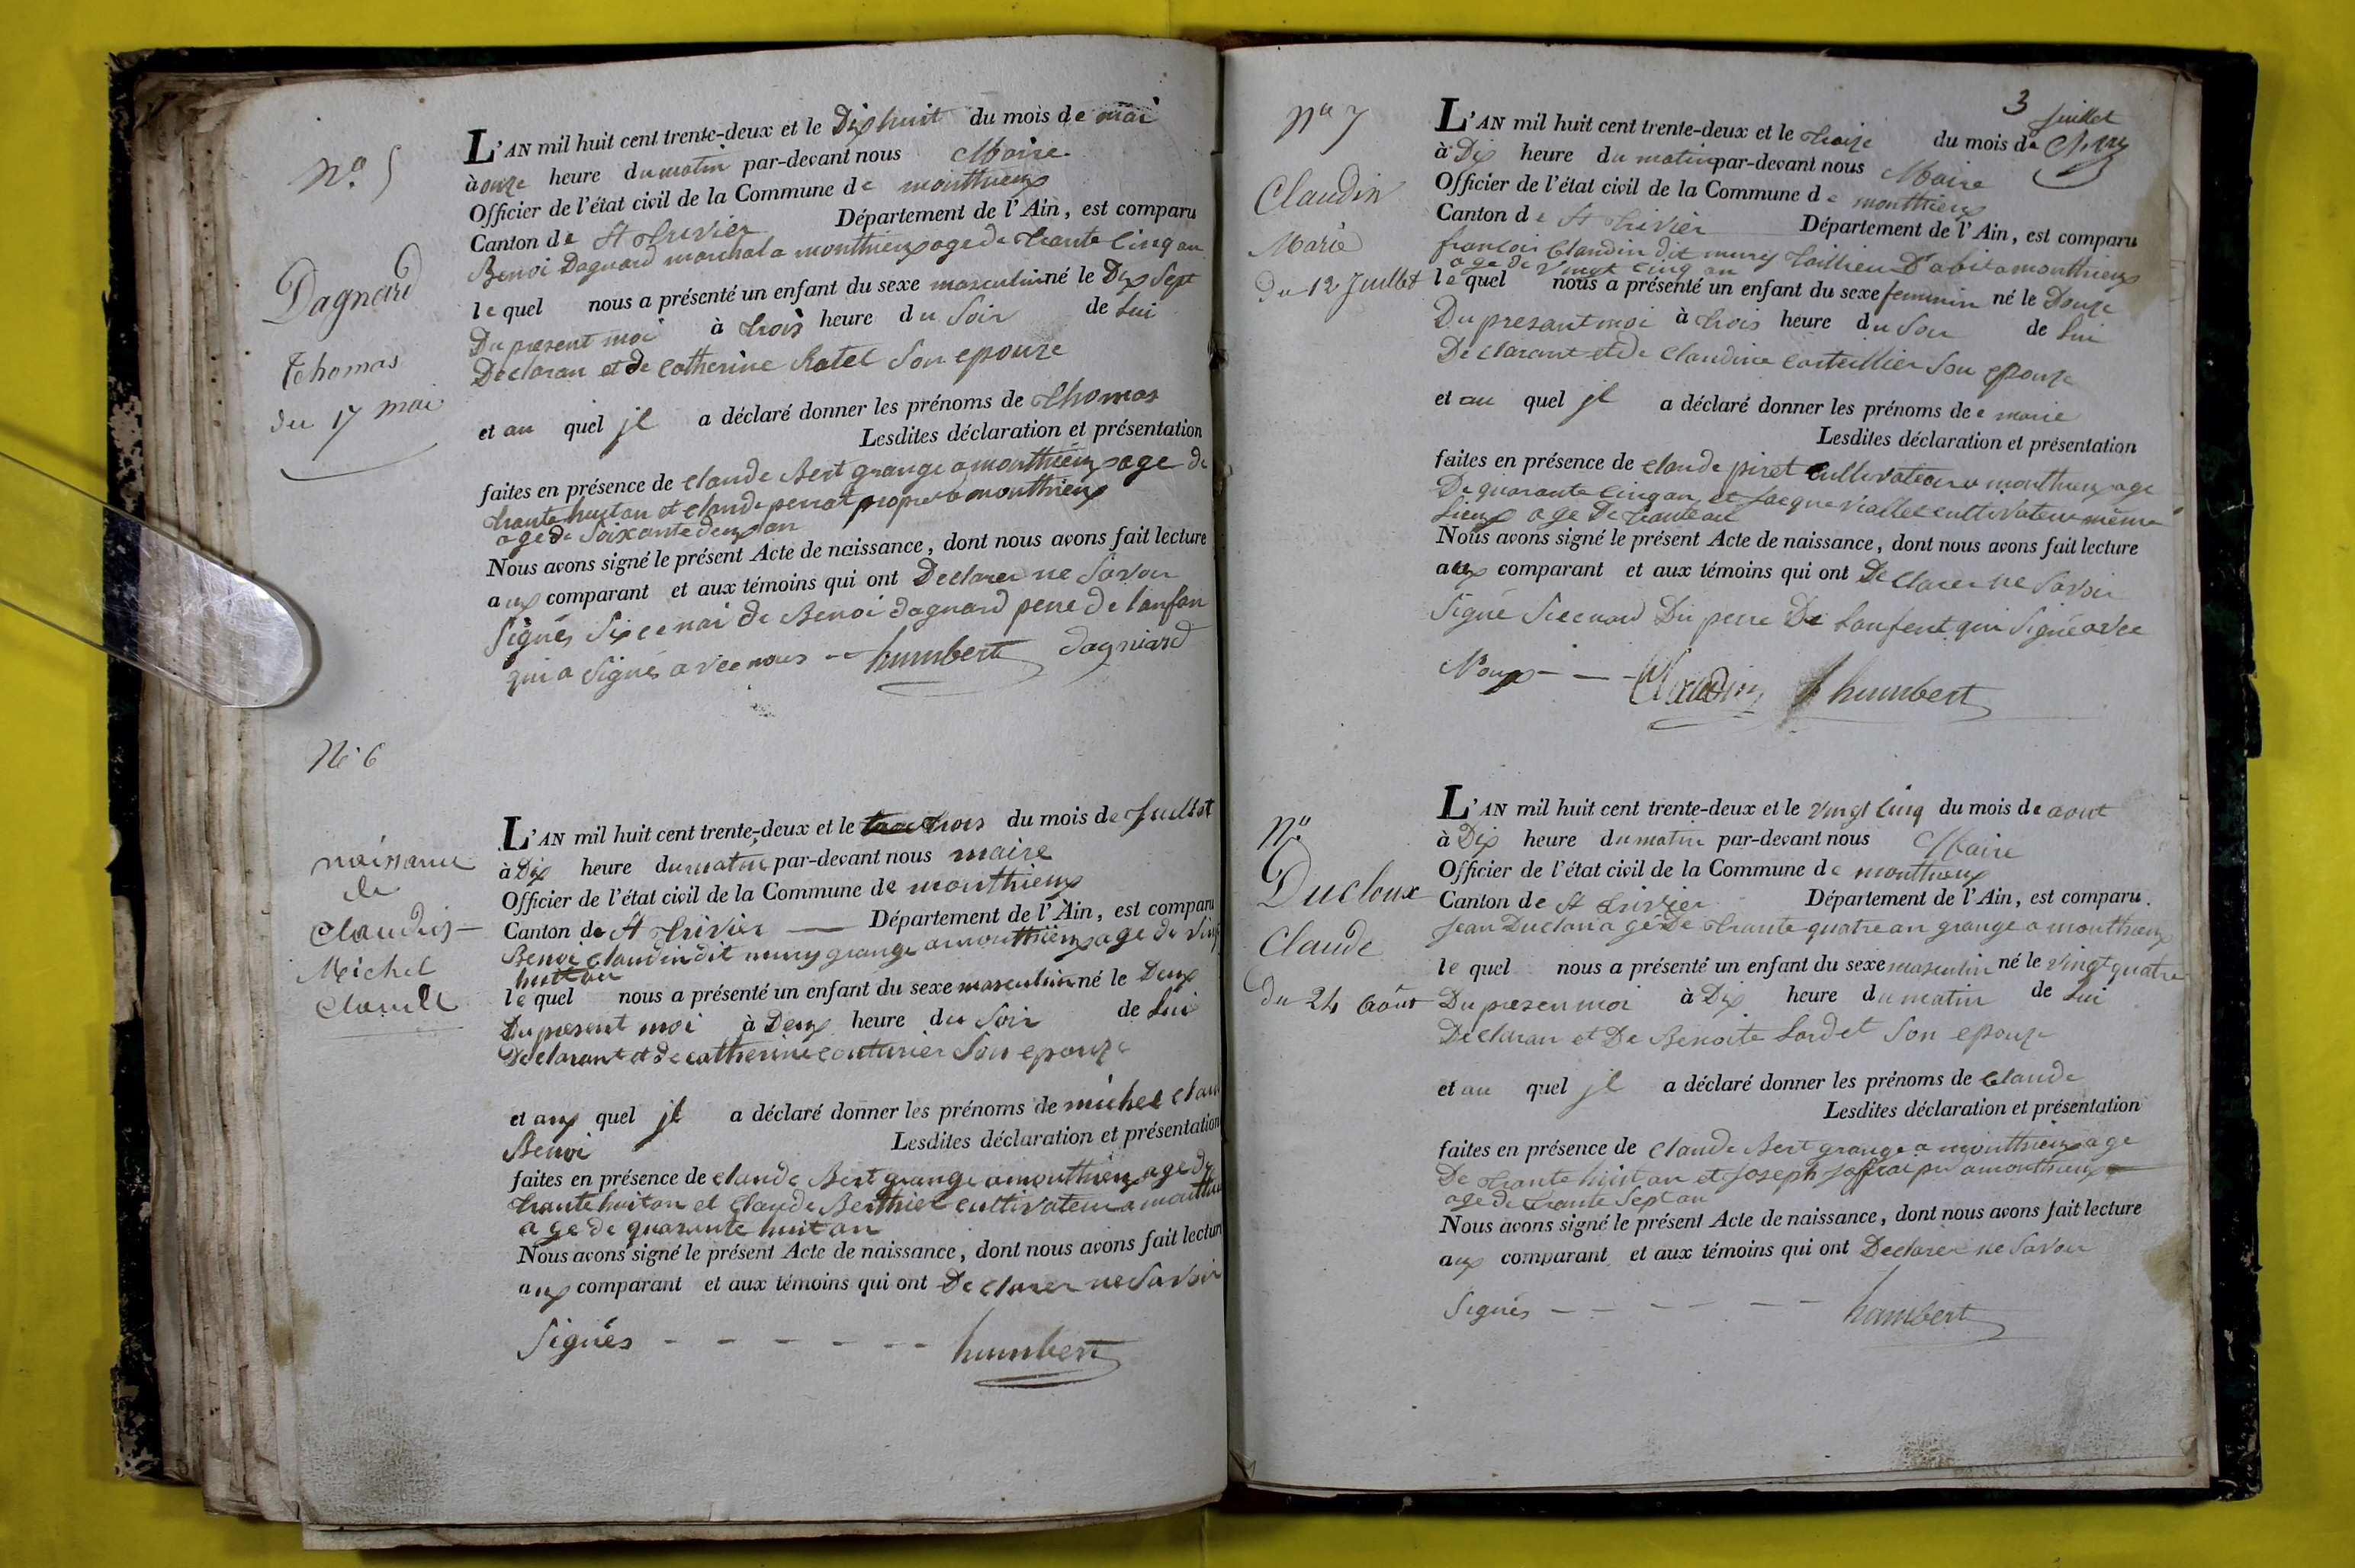 N° 5
Dagnard
Thomas
du 17 mai
L'AN mil huit cent trente-deux et le Dix huit du mois de mai
à onze heure du matin par-devant nous Maire
Officier de l'état civil de la Commune de monthieux
Canton de St Trivier Département de l'Ain, est comparu
Benoi Dagnard marchal a monthieux age de trante cinq an
le quel nous a présenté un enfant du sexe masculin né le Dix Sept
Du present moi à trois heure du Soir de Lui
Declaran et de Catherine Ratel Son epouze
et au quel jl a déclaré donner les prénoms de Thomas
Lesdites déclaration et présentation
faites en présence de Claude Bert granger a monthieux age de
trante huit an et Claude perrat propre a monthieux
age de Soixante deux an
Nous avons signé le présent Acte de naissance, dont nous avons fait lecture
aux comparant et aux témoins qui ont Declarer ne Savoir
Signés Sixe nai de Benoi dagnard pere de l'anfan
qui a Signés avec nous humbert dagniard
N° 6
naissance
de
Claudin
Michel
Claude
L'AN mil huit cent trente-deux et le trois du mois de Juillet
à Dix heure du matin par-devant nous maire
Officier de l'état civil de la Commune de monthieux
Canton de St Trivier Département de l'Ain, est comparu
Benoi Claudin dit mury granger a monthieux age de Vingt
huit an
le quel nous a présenté un enfant du sexe masculin né le Deux
Du present moi à Deux heure du Soir de Lui
Declarant et de catherine couturier Son epouze
et aux quel jl a déclaré donner les prénoms de michel clau
Benoi Lesdites déclaration et présentation
faites en présence de Claude Bert granger a monthieux age de
trante huit an et Claude Berthier cultivateur a monthieu
age de quarante huit an
Nous avons signé le présent Acte de naissance, dont nous avons fait lecture
aux comparant et aux témoins qui ont Declarer ne Savoir
Signés - - - - - - humbert
3
N° 7
Claudin
Marie
du 12 Juillet
Juillet
L'AN mil huit cent trente-deux et le traize du mois de
à Dix heure du matin par-devant nous Maire
Officier de l'état civil de la Commune de monthieux
Canton de St Trivier Département de l'Ain, est comparu
francois Claudin dit mury taillieur D'abit a monthieux
age de Vingt cinq an
le quel nous a présenté un enfant du sexe feminin né le Douze
Du presant moi à trois heure du Soir de Lui
Declarant et de Claudine Carteillier Son epouze
et au quel jl a déclaré donner les prénoms de marie
Lesdites déclaration et présentation
faites en présence de Claude piret Cultivateur a monthieux age
De quarante Cinq an et Jacque Viallet cultivateur même
Lieux age De trante an
Nous avons signé le présent Acte de naissance, dont nous avons fait lecture
aux comparant et aux témoins qui ont De Clarer ne Savoir
Signé Du pere De Lanfent qui Signé avec
Noux - - - Claudin humbert
N°
Ducloux
Claude
du 24 août
L'AN mil huit cent trente-deux et le Vingt Cinq du mois de aout
à Dix heure du matin par-devant nous Maire
Officier de l'état civil de la Commune de monthieux
Canton de St Trivier Département de l'Ain, est comparu.
Jean Duclou agé De trante quatre an granger a monthieux
le quel nous a présenté un enfant du sexe masculin né le Vingt quatre
Du presen moi à Dix heure du matin de Lui
Declaran et De Benoite Lardet Son epouze
et au quel jl a déclaré donner les prénoms de Claude
Lesdites déclaration et présentation
faites en présence de Claude Bert granger a monthieux age
De trante huit an et Joseph a monthieux
age de trante Sept an
Nous avons signé le présent Acte de naissance, dont nous avons fait lecture
aux comparant et aux témoins qui ont Declarer ne Savoir
Signés - - - - - - humbert